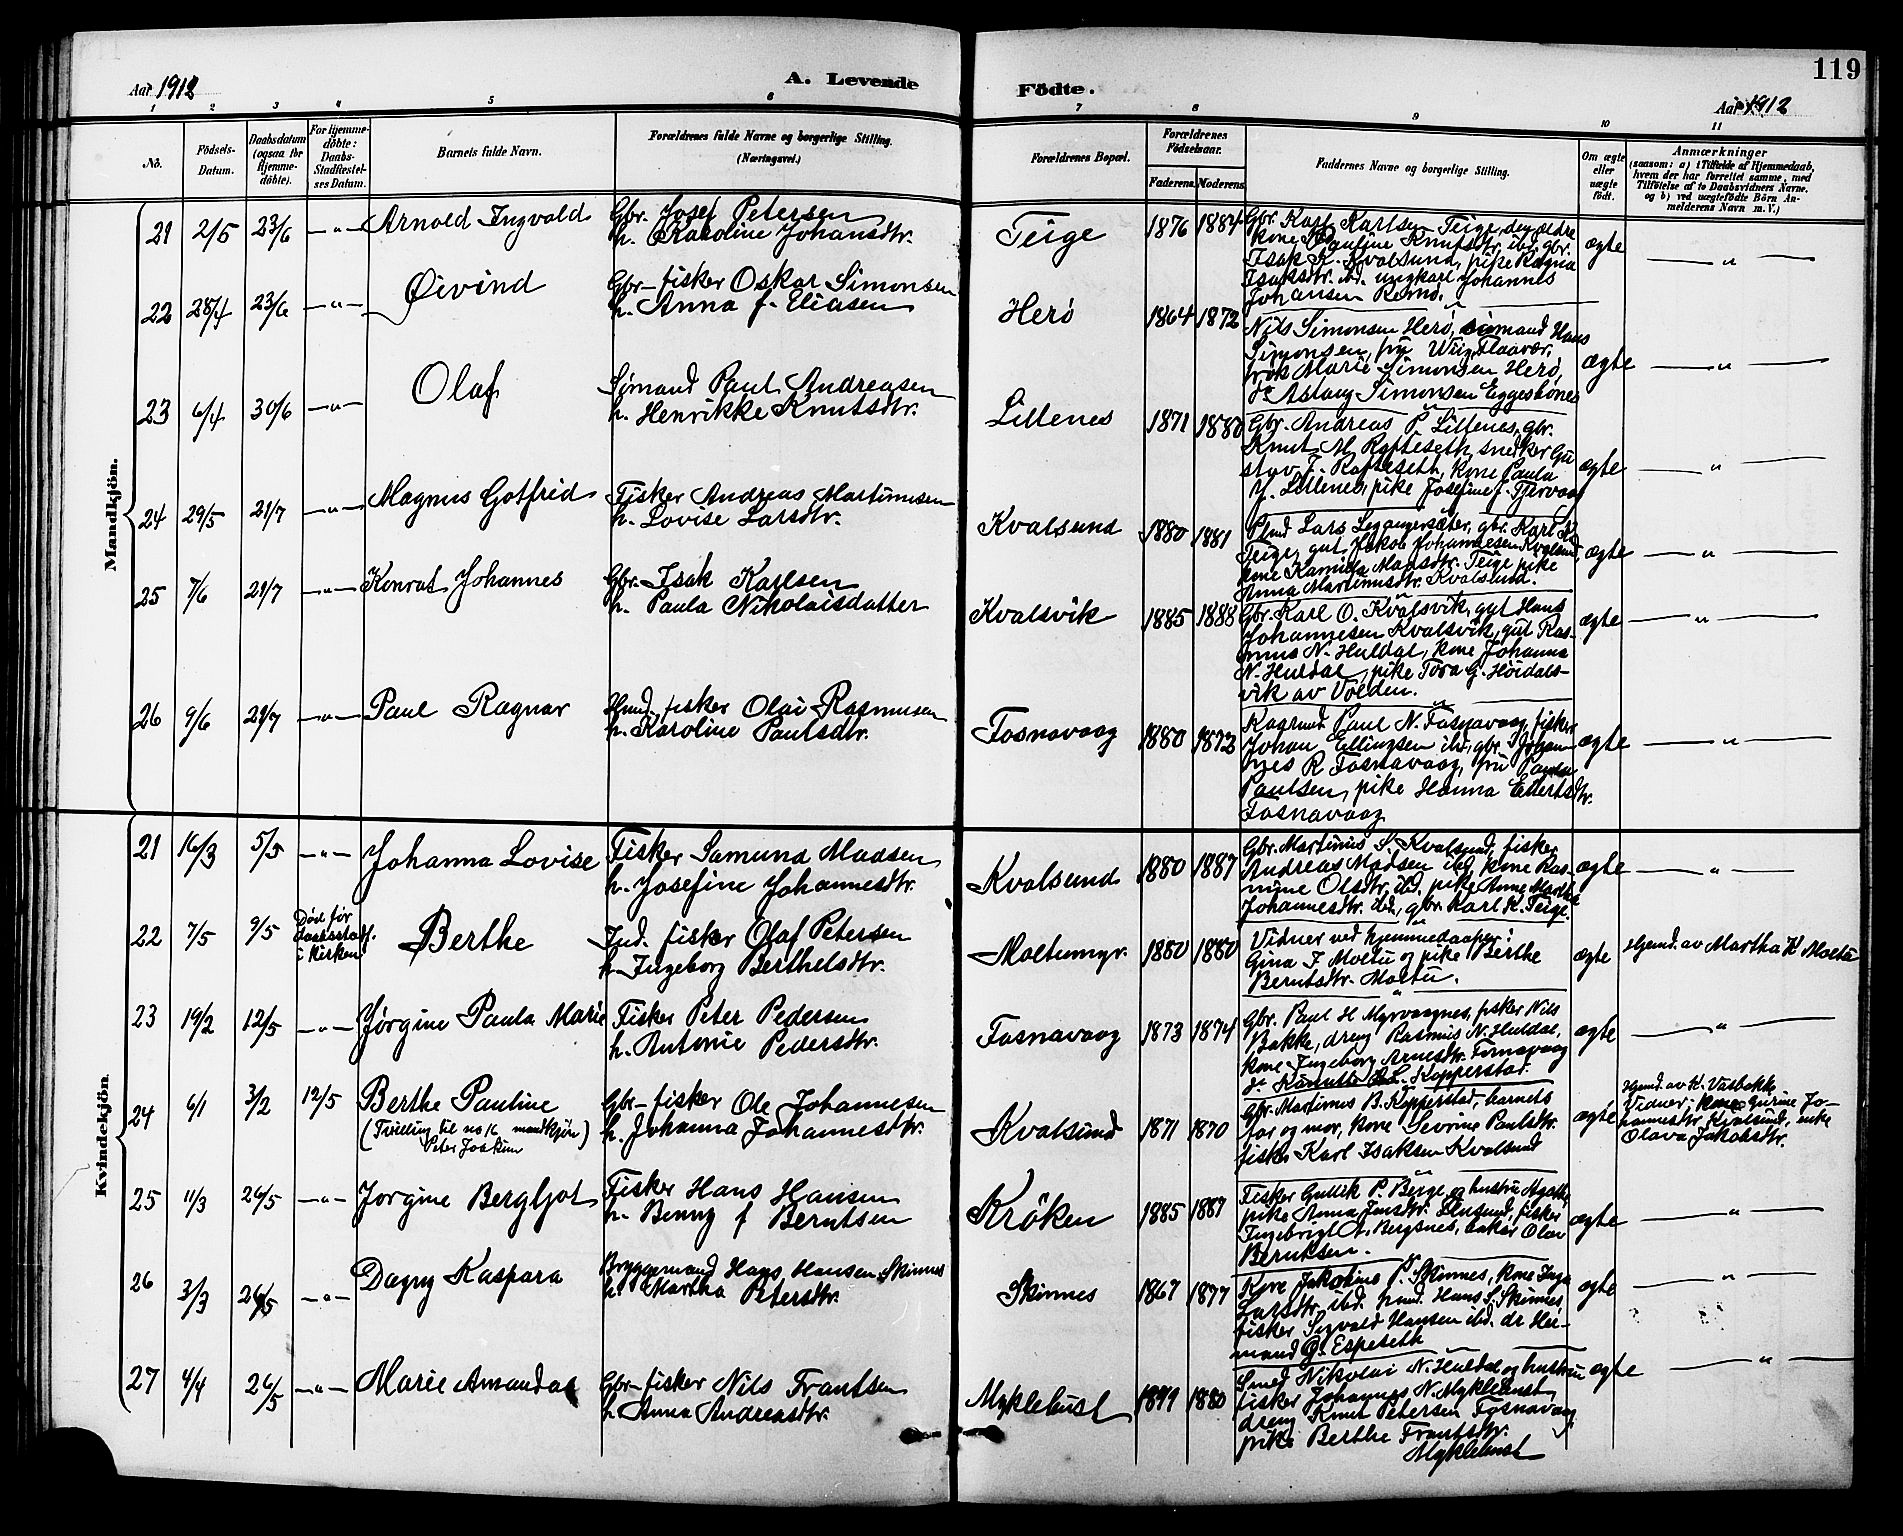 119
Aar 1912
A. Levende
Födte.
Aar 1912
1 2 3 4 5 6 7 8 9 10 11
No.
Födsels-
Datum.
Daabsdatum
(ogsaa for
Hjemme-
döbte).
For Hjemme-
döbte:
Daabs-
Stadfæstel-
ses Datum.
Barnets fulde Navn.
Forældrenes fulde Navne og borgerlige Stilling.
(Næringsvei.)
Forældrenes Bopæl.
Forældrenes
Födselsaar.
Faderens Moderens
Faddernes Navne og borgerlige Stilling.
Om ægte
eller
uægte
födt.
Anmærkninger
(saasom: a) i Tilfælde af Hjemmedaab,
hvem der har forrettet samme, med
Tilföielse af to Daabsvidners Navne,
og b) ved uægtefödte Börn An-
melderens Navn m. V.)
Mandkjön.
21 2/5 23/6 —"— Arnold Ingvald
Gbr. Josef Petersen
h. Karoline Johansdtr.
Teige 1876 1884
Gbr. Karl Karlsen Teige, den ældre
kone Pauline Knutsdtr. ibd, gbr.
Isak K. Kvalsund, pike Ragna
Isaksdtr. ibd. ungkarl Johannes
Johansen Remø.
ægte — " —
22 28/4 23/6 —"— Øivind
Gbr-fisker Oskar Simonsen
h. Anna f. Eliasen
Herø 1864 1872
Nils Simonsen Herø, sømand Hans
Simonsen, fru Wiig, Flaavær,
frøk Marie Simonsen Herø,
do Aslaug Simonsen Eggesbønes
ægte — " —
23 6/4 30/6 —"— Olaf
Sømand Paul Andreasen
h. Henrikke Knutsdtr.
Lillenes 1871 1880
Gbr. Andreas P. Lillenes, gbr.
Knut M. Rafteseth, snedker Gu
stav J. Rafteseth, kone Paula
J. Lillenes, pike Josefine J. Tjervaag
ægte — " —
24 29/5 21/7 —"— Magnus Gotfrid
Fisker Andreas Martinusen
h. Lovise Larsdtr.
Kvalsund 1880 1881
Pmd Lars Legangersæter, gbr. Karl K.
Teige, gut Jakob Johannesen Kvalsund,
kone Kamilla Madsdtr. Teige pike
Anna Martinusdtr. Kvalsund.
ægte — " —
25 7/6 21/7 —"— Konrad Johannes
Gbr. Isak Karlsen
h. Paula Nikolaisdatter
Kvalsvik 1885 1888
Gbr. Karl O. Kvalsvik, gut Hans
Johannesen Kvalsvik, gut Ras-
mus N. Huldal, kone Johanna
N. Huldal, pike Tora G. Høidals-
vik av Volden.
ægte — " —
26 9/6 21/7 —"— Paul Ragnar
Hmd. fisker Olai Rasmusen
h. Karoline Paulsdtr.
Fosnavaag 1880 1872
Kaarmd. Paul N. Fosnavaag, fisker
Johan Ellingsen ibd, gbr. Johan
nes R Fosnavaag, fru Paula
Paulsen, pike Hanna Ellertsdtr.
Fosnavaag
ægte — " —
Kvindekjön.
21 16/3 5/5 —"— Johanna Lovise
Fisker Samund Madsen
h. Josefine Johannesdtr.
Kvalsund 1880 1887
Gbr. Martinus S. Kvalsund, fisker
Andreas Madsen ibd, kone Ras-
mine Olsdtr. ibd, pike Anne Martha
Johannesdtr. ibd, gbr. Karl K. Teige.
ægte — " —
22 7/5 9/5 Død før
daabsstadf.
i kirken Berthe
Ind. fisker Olaf Petersen
h. Ingeborg Berthelsdtr.
Moltumyr. 1880 1880
Vidner ved hjemmedaapen:
Gina J Moltu og pike Berthe
Berntsdtr. Moltu.
ægte Hjemd. av Martha K Moltu
23 19/2 12/5 —"— Jørgine Paula Marie
Fisker Peter Pedersen
h. Antonie Pedersdtr.
Fosnavaag 1873 1874
Gbr. Paul H Myrvaagnes, fisker Nils
Bakke, dreng Rasmus N. Huldal,
kone Ingeborg Arnesdtr. Fosnavaag
Kopperstad.
ægte — " —
24 6/1 3/2 12/5 Berthe Pauline
(Tvilling til no 16 mandkjøn)
Peter Joakim
Gbr-fisker Ole Johannesen
h. Johanna Johannesdtr.
Kvalsund 1871 1870
Gbr. Martinus B. Kopperstad, barnets
far og mor, kone Severine Paulsdtr.
fisker Karl Isaksen Kvalsund
ægte Hjemd. av K. Vasbakke
Vidner: kone Gurine Jo-
hannesdtr. Kvalsund, enke
Olava Jakobsdtr.
25 11/3 26/5 —"— Jørgine Bergljot
Fisker Hans Hansen
h. Benny f Berntsen
Krøken 1885 1887
Fisker Gullik P. Berge, og hustru Agathe,
pike Anna Jensdtr. fisker
Ingebrigt A. Bergsnes, baker Olav
Berntsen.
ægte — " —
26 3/3 26/5 —"— Dagny Kaspara
Bryggemand Hans Hansen Skinnes
h. Martha Petersdtr.
Skinnes 1867 1877
Kone Jakobine P. Skinnes, kone Inga
Larsdtr. ibd. pmd. Hans S. Skinnes,
fisker Sigvald Hansen ibd. dr Her-
mand O. Espeseth
ægte — " —
27 4/4 26/5 —"— Marie Amanda
Gbr-fisker Nils Frantsen
h. Anna Andreasdtr.
Myklebust 1879 1880
Smed Nikolai N. Huldal og hustru
fisker Johannes N. Myklebust,
dreng Knut Petersen Fosnavaag
pike Berthe Frantsdtr.
Myklebust
ægte — " —